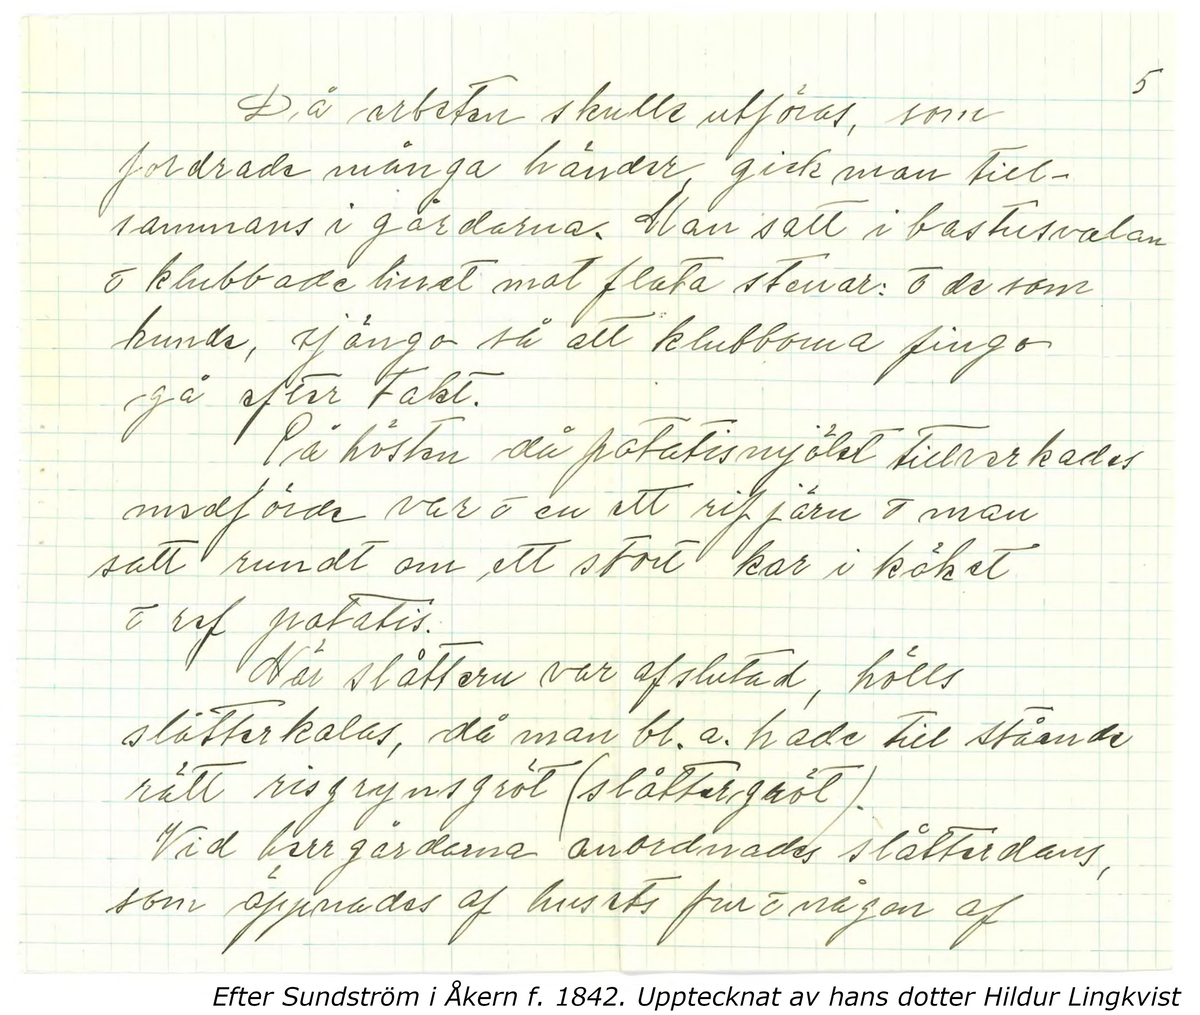 5
Då arbeten skulle utföras, som
fordrade många händer, gick man till-
sammans i gårdarna. Man satt i bastusvalan
o klubbade linet mot flata stenar: o de som
kunde, sjöngo så att klubborna fingo
gå efter takt.
På hösten då potatismjölet tillverkades
medförde var o en ett rifjärn o man
satt rundt om ett stort kar i köket
o ref potatis.
När slåttern var afslutad, hölls
slåtterkalas, då man bl. a. hade till stående
rätt risgrynsgröt (slåttergröt).
Vid herrgårdarna anordnades slåtterdans,
som öppnades af husets fru o någon af
Efter Sundström i Åkern f. 1842. Upptecknat av hans dotter Hildur Lingkvist